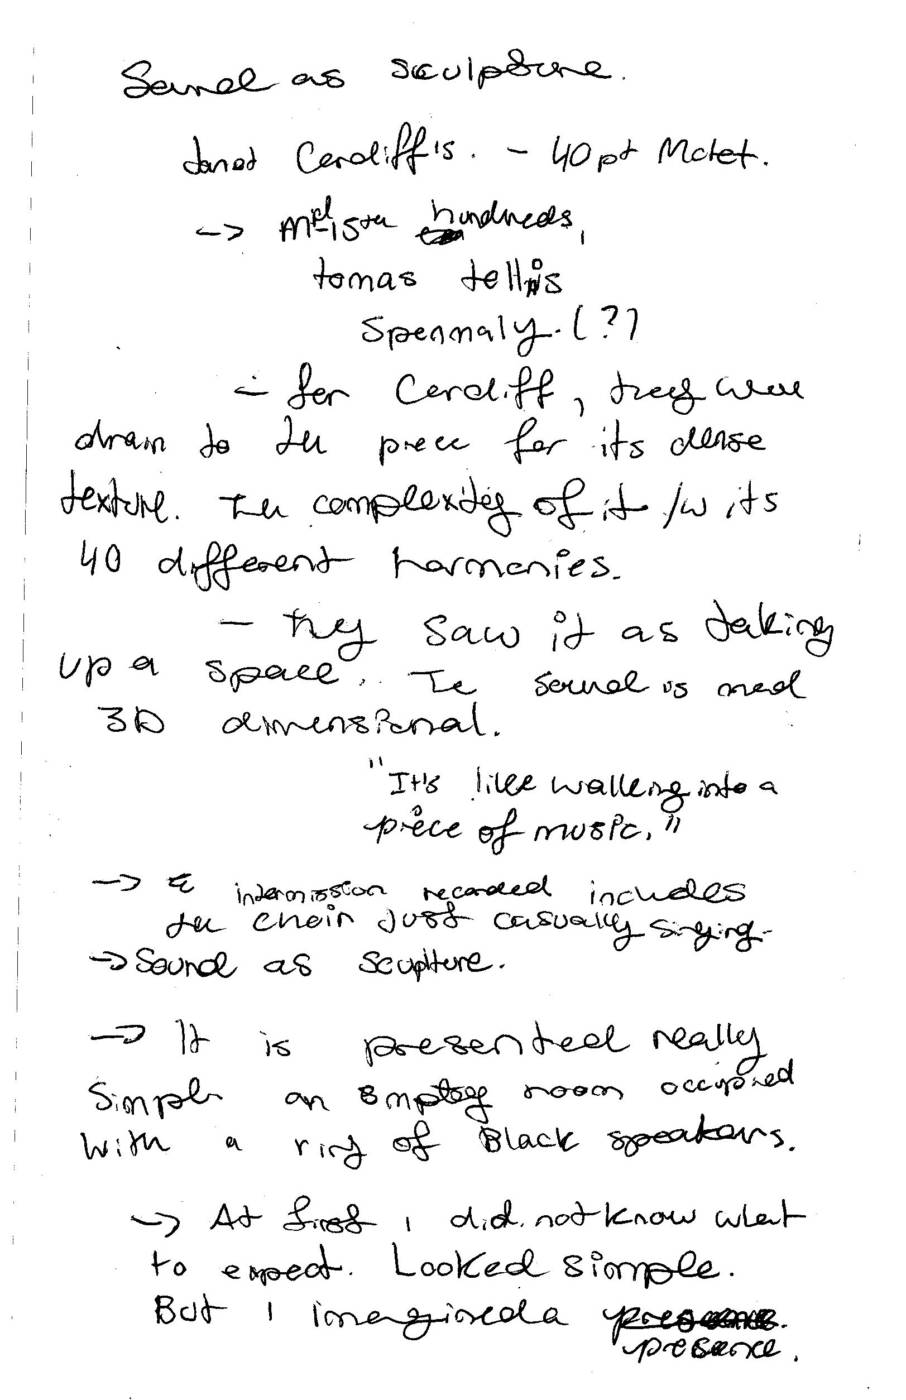 Sound as sculpture.
Janet Cardiff's. - 40pt Motet.
-> Mid-15th hundreds,
tomas tellis
Spemnaly. (?)
- for Cardiff, they were
drawn to the piece for its dense
texture. The complexity of it /w its
40 different harmonies.
- they saw it as taking
up a space. The sound is
3D dimensional.
"It's like walking into a
piece of music."
-> intermission recorded includes
the choir just casually singing.
-> Sound as scuplture.
-> It is presented really
simple an empty room occupied
with a ring of Black speakers.
-> At first i did not know what
to expect. Looked simple.
But i imagined a
presence.